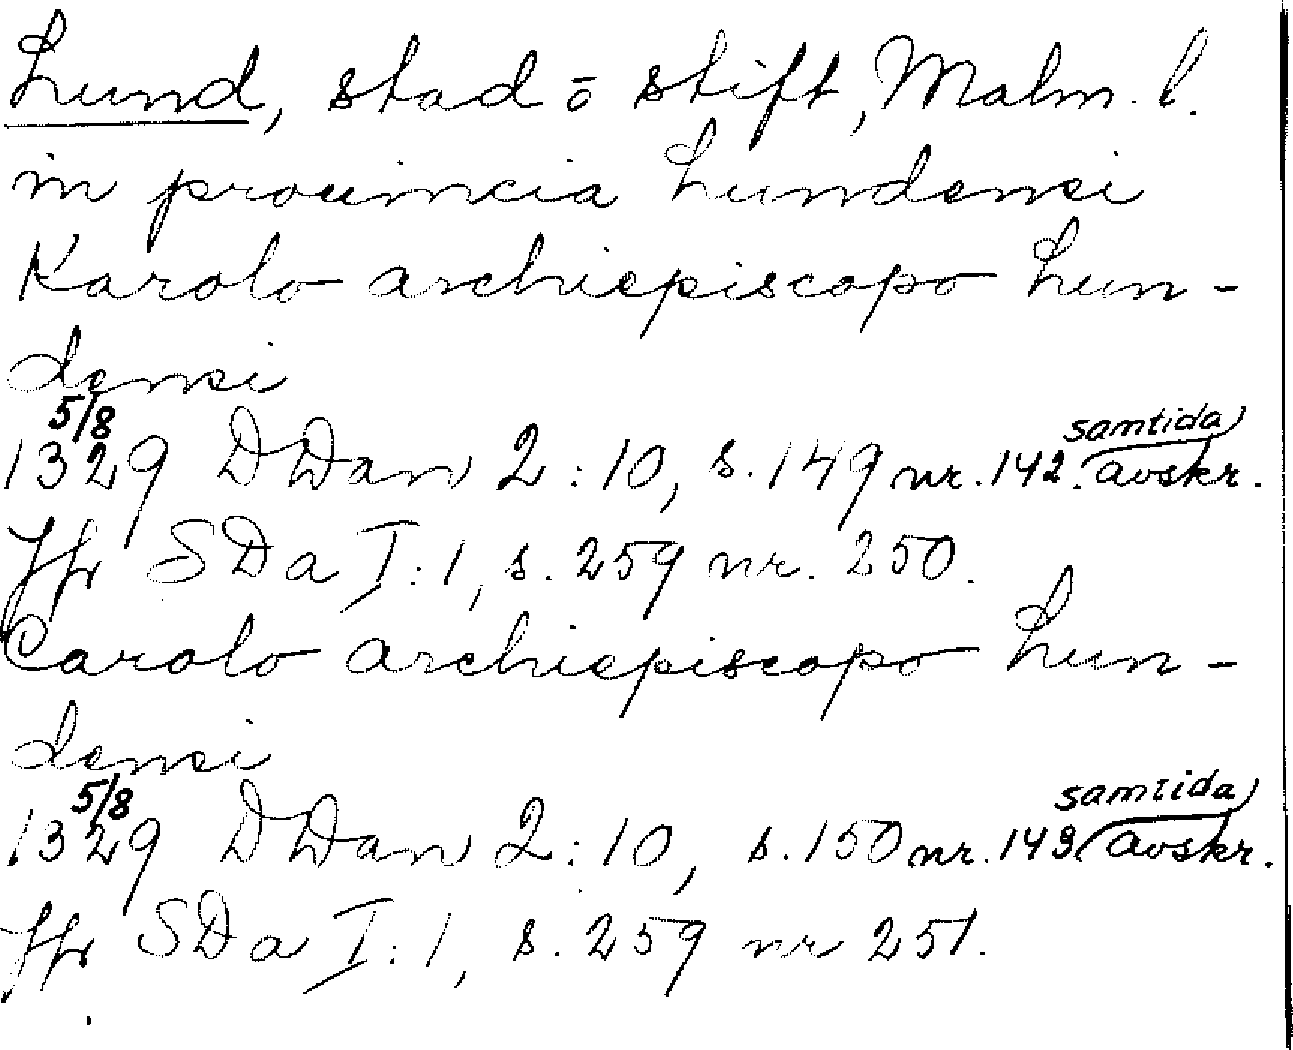 Lund, stad o stift, Malm. l.
in prouincia Lundensi
Karolo archiepiscopo Lun-
densi
5/8
1329 DDan 2:10, s. 149 nr. 142. samtida avskr.
Jfr SDa I:1, s. 259 nr. 250.
Carolo archiepiscopo Lun-
densi
5/8
1329 DDan 2:10, s. 150 nr. 143 samtida avskr.
Jfr SDa I:1, s. 259 nr 251.